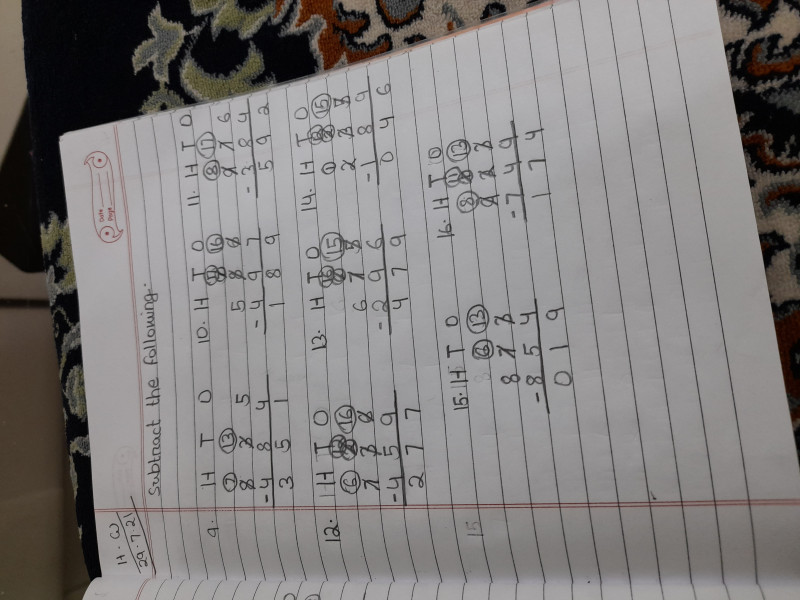 H.W
29.7.21
Date
Page
Subtract the following:-
9. H T O
7 13
8 3 5
-4 8 4
3 5 1
10. H T O
16
5 8 6
-4 9 7
1 8 9
11. H T O
8 17
9 7 6
-3 8 4
5 9 2
12. H T O
6 12 16
7 3 6
-4 5 9
2 7 7
13. H T O
16 15
6 7 5
-2 9 6
4 7 9
14. H T O
1 12 15
2 3 5
-1 8 9
0 4 6
15. H T O
6 13
8 7 3
-8 5 4
0 1 9
16. H T O
8 11 13
9 2 3
-7 4 9
1 7 4
15